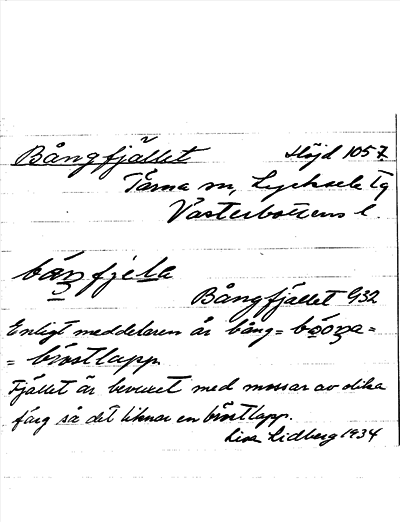 Bångfjället Höjd 1057
Tärna sn, Lycksele lg
Västerbottens l.
Bångfjället G32
Enligt meddelaren är bång =
= bröstlapp.
Fjället är bevuxet med mossar av olika
färg så det liknar en bröstlapp.
Lisa Lidberg 1934